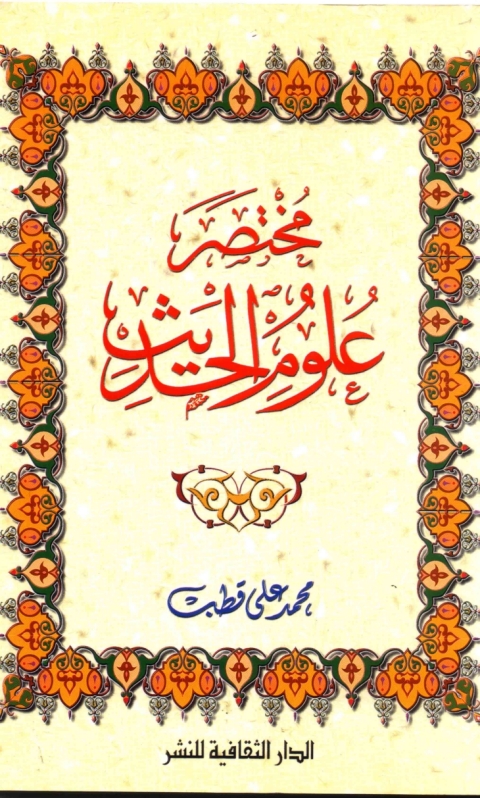 مُختصر
عُلُومُ الحَدِيث
محمد على قطب
الدار الثقافية للنشر